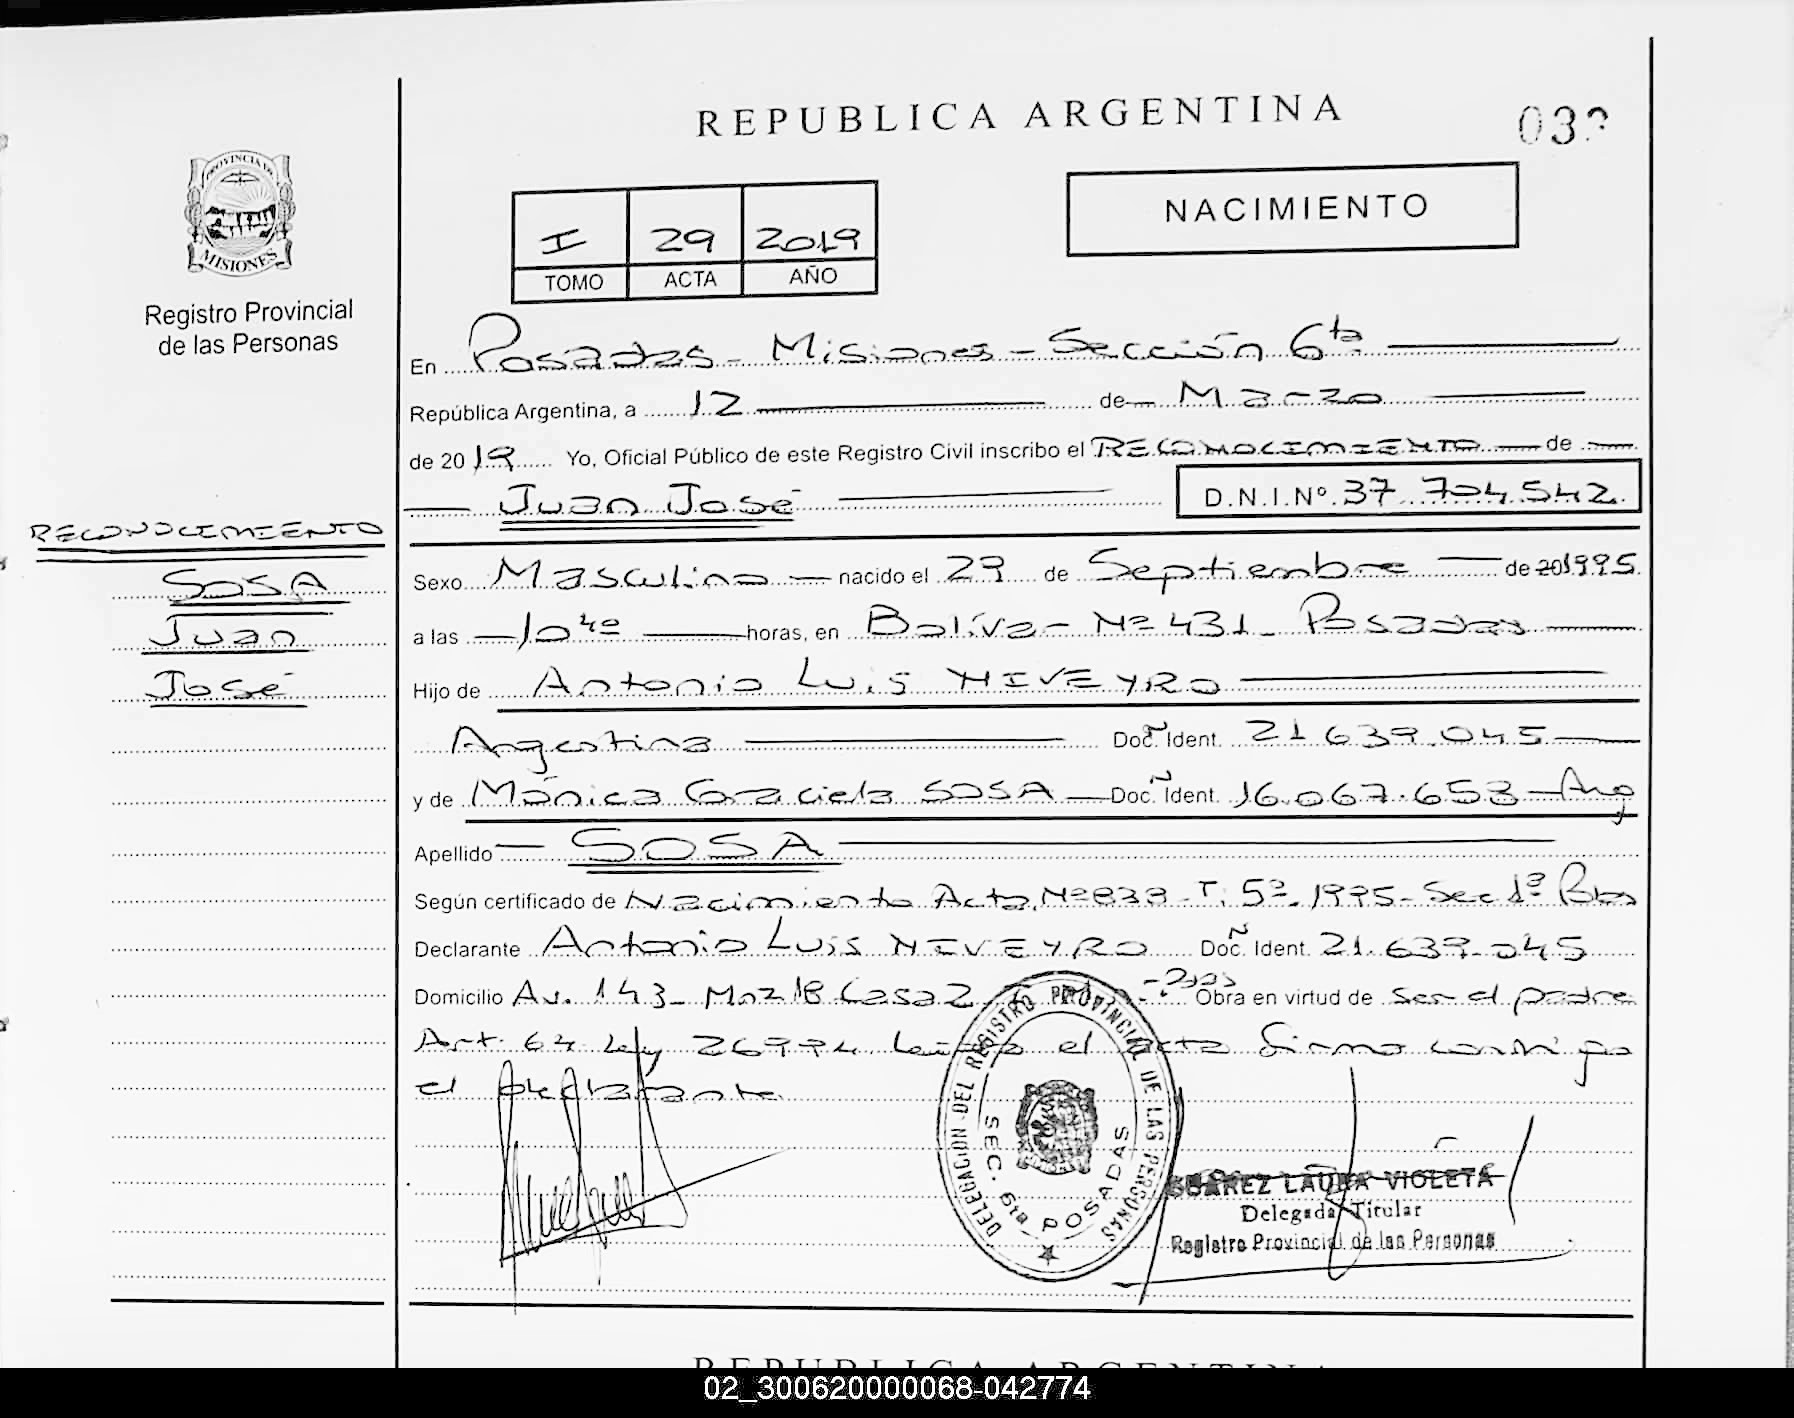 REPUBLICA ARGENTINA
03
PROVINCIA DE
MISIONES
Registro Provincial
de las Personas
NACIMIENTO
I 29 2019
TOMO ACTA AÑO
En Posadas - Misiones - Sección 6ta
República Argentina, a 12 de Marzo
de 2019 Yo, Oficial Público de este Registro Civil inscribo el RECONOCIMIENTO de
Juan José D.N.I.Nº 37.704.542
RECONOCIMIENTO
SOSA
Juan
José
Sexo Masculino nacido el 29 de Septiembre de 201995
a las 10 40 horas, en Bolívar Nº 431 - Posadas
Hijo de Antonio Luis NIVEYRO
Argentina Doc. Ident. 21.639.045
y de Mónica Graciela SOSA Doc. Ident. 16.067.653 - Arg
Apellido SOSA
Según certificado de Nacimiento Acta Nº 839 - T: 5º - 1995 - Sec 1º Pdas
Declarante Antonio Luis NIVEYRO Doc. Ident. 21.639.045
Domicilio Av. 143 - Mnz 18 Casa 2 Obra en virtud de ser el padre
Art. 64 Ley 26994 el acta firma conmigo
el declarante.
DELEGACION DEL REGISTRO PROVINCIAL DE LAS PERSONAS
SEC. 6ta POSADAS
SUAREZ LAURA VIOLETA
Delegada Titular
Registro Provincial de las Personas
REPUBLICA ARGENTINA
02_300620000068-042774